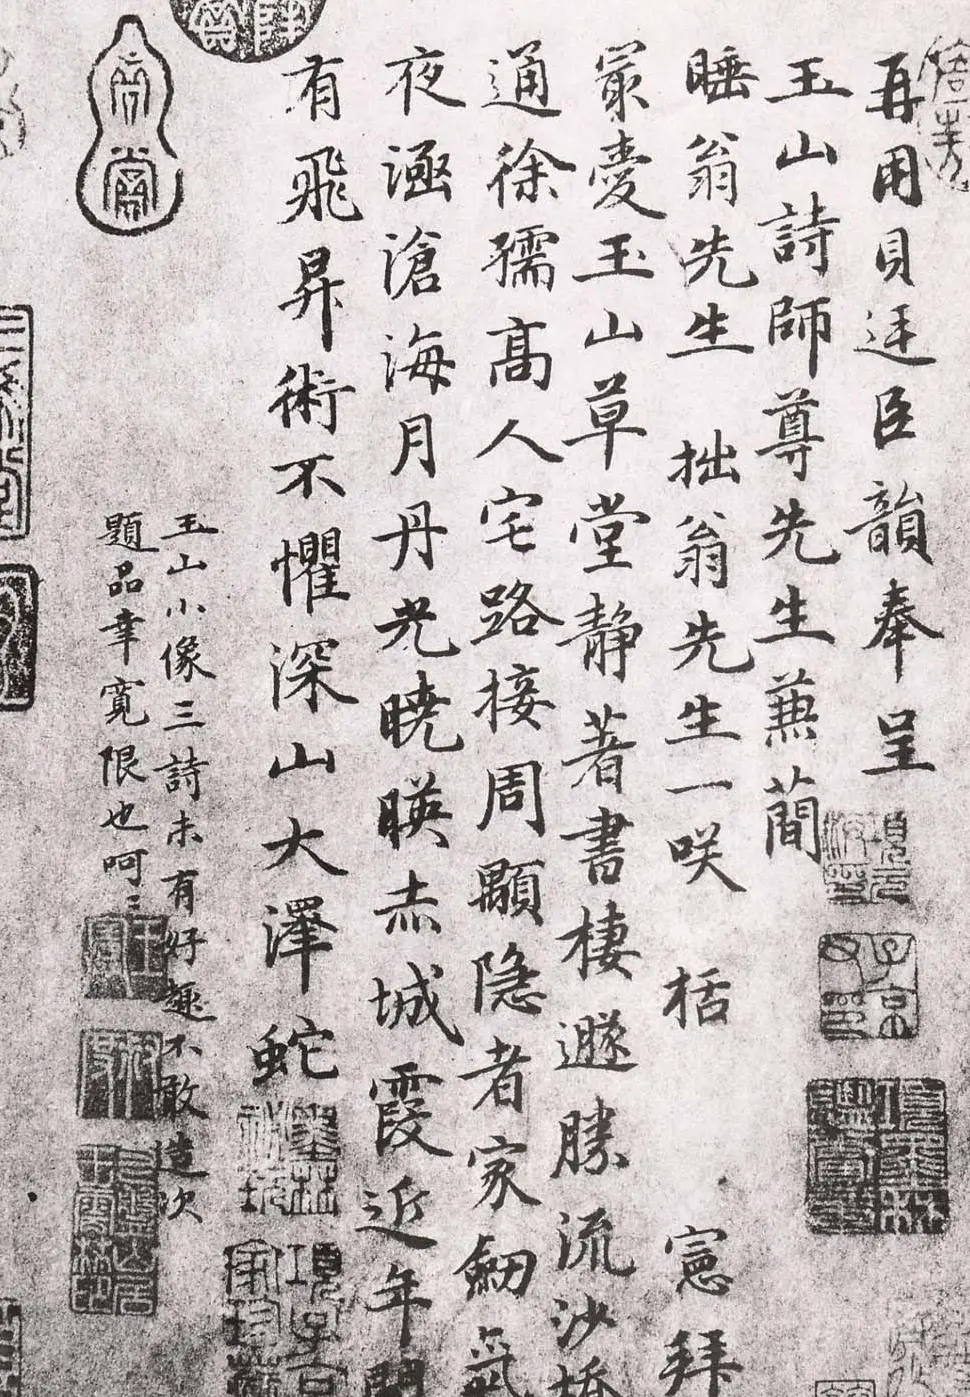 再用貝廷臣韻奉呈
玉山詩師尊先生兼蕳
睡翁先生 拙翁先生一咲 栝 憲拜
最愛玉山草堂静著書棲遯勝流沙橋
通徐孺髙人宅路接周顒隐者家劒氣
夜涵滄海月丹光曉暎赤城霞近年聞
有飛昇術不懼深山大澤蛇
玉山小像三詩未有好趣不敢造次
題品幸寛限也呵〻